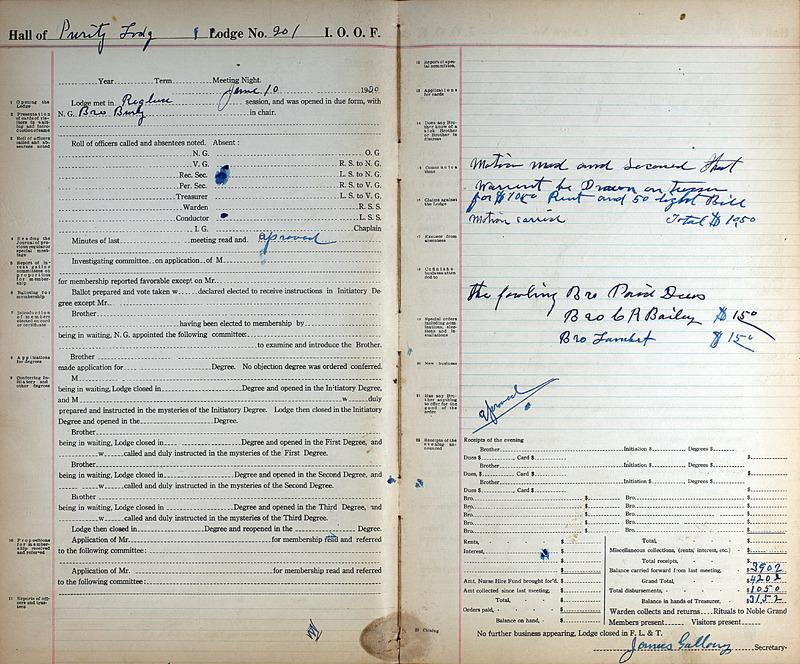 Hall of Purity Lodg Lodge No. 201 I. O. O. F.
Year Term Meeting Night.
June 10 1920
Lodge met in Reglure session, and was opened in due form, with
N. G. Bro in chair.
Roll of officers called and absentees noted. Absent:
N. G. O. G
V. G. R. S. to N. G.
Rec. Sec. L. S. to N. G.
Per. Sec. R. S. to V. G.
Treasurer L. S. to V. G.
Warden R. S. S.
Conductor L. S. S.
I. G. Chaplain
Minutes of last meeting read and approved
Investigating committee on application of M
for membership reported favorable except on Mr.
Ballot prepared and vote taken w declared elected to receive instructions in Initiatory De-
gree except Mr.
Brother
having been elected to membership by
being in waiting, N. G. appointed the following committee:
to examine and introduce the Brother.
Brother
made application for Degree. No objection degree was ordered conferred.
M
being in waiting, Lodge closed in Degree and opened in the Initiatory Degree,
and M w duly
prepared and instructed in the mysteries of the Initiatory Degree. Lodge then closed in the Initiatory
Degree and opened in the Degree.
Brother
being in waiting, Lodge closed in Degree and opened in the First Degree, and
w called and duly instructed in the mysteries of the First Degree.
Brother
being in waiting, Lodge closed in Degree and opened in the Second Degree, and
w called and duly instructed in the mysteries of the Second Degree.
Brother
being in waiting, Lodge closed in Degree and opened in the Third Degree, and
w called and duly instructed in the mysteries of the Third Degree.
Lodge then closed in Degree and reopened in the Degree.
Application of Mr. for membership read and referred
to the following committee:
Application of Mr. for membership read and referred
to the following committee:
1 Opening the Lodge
2 Presentation of cards of visitors in waiting and introduction of same
3 Roll of officers called and absentees noted
4 Reading the Journal of previous regular or special meetings
6 Balloting for membership
8 Applications for degrees
9 Conferring Initiatory and other degrees
10 Propositions for membership received and referred
11 Reports of officers and trustees
12 Report of special committees.
13 Applications for cards
14 Does any Brother know of a sick Brother or Brother in distress
15 Communications
Motion mad and Seconed that
Warrent be Drawn on
16 Claims against the Lodge
for $ Rent and 50 light Bill
Motion carried Total $ 1950
17 Excuses from absentees
18 Unfinished business attended to
The Bro Paid Dues
Bro C R Bailey $ 150
Bro Lambert $ 150
20 New business
21 Has any Brother anything to offer for the good of the order
aproved
22 Receipts of the evening announced
Receipts of the evening
Brother Initiation $ Degrees $ $
Dues $ , Card $ $
Brother Initiation $ Degrees $
Dues, $ , Card $ $
Brother Initiation $ Degrees $
Dues $ , Card $ $
Bro. $ Bro. $
Bro. $ Bro. $
Bro. $ Bro. $
Bro. $ Bro. $
Bro. $ Bro. $
Rents, $ Total, $
Interest, $ Miscellaneous collections, (rents, interest, etc.) $
Total receipts, $
Balance carried forward from last meeting, $ 3902
Amt. Nurse Hire Fund brought for'd. $ Grand Total, $ 4202
Amt collected since last meeting, $ Total disbursements, $ 1050
Total, $ Balance in hands of Treasurer, $ 3152
Orders paid, $ Warden collects and returns Rituals to Noble Grand
Balance on hand, $ Members present Visitors present
23 Closing
No further business appearing, Lodge closed in F. L. & T.
James Secretary